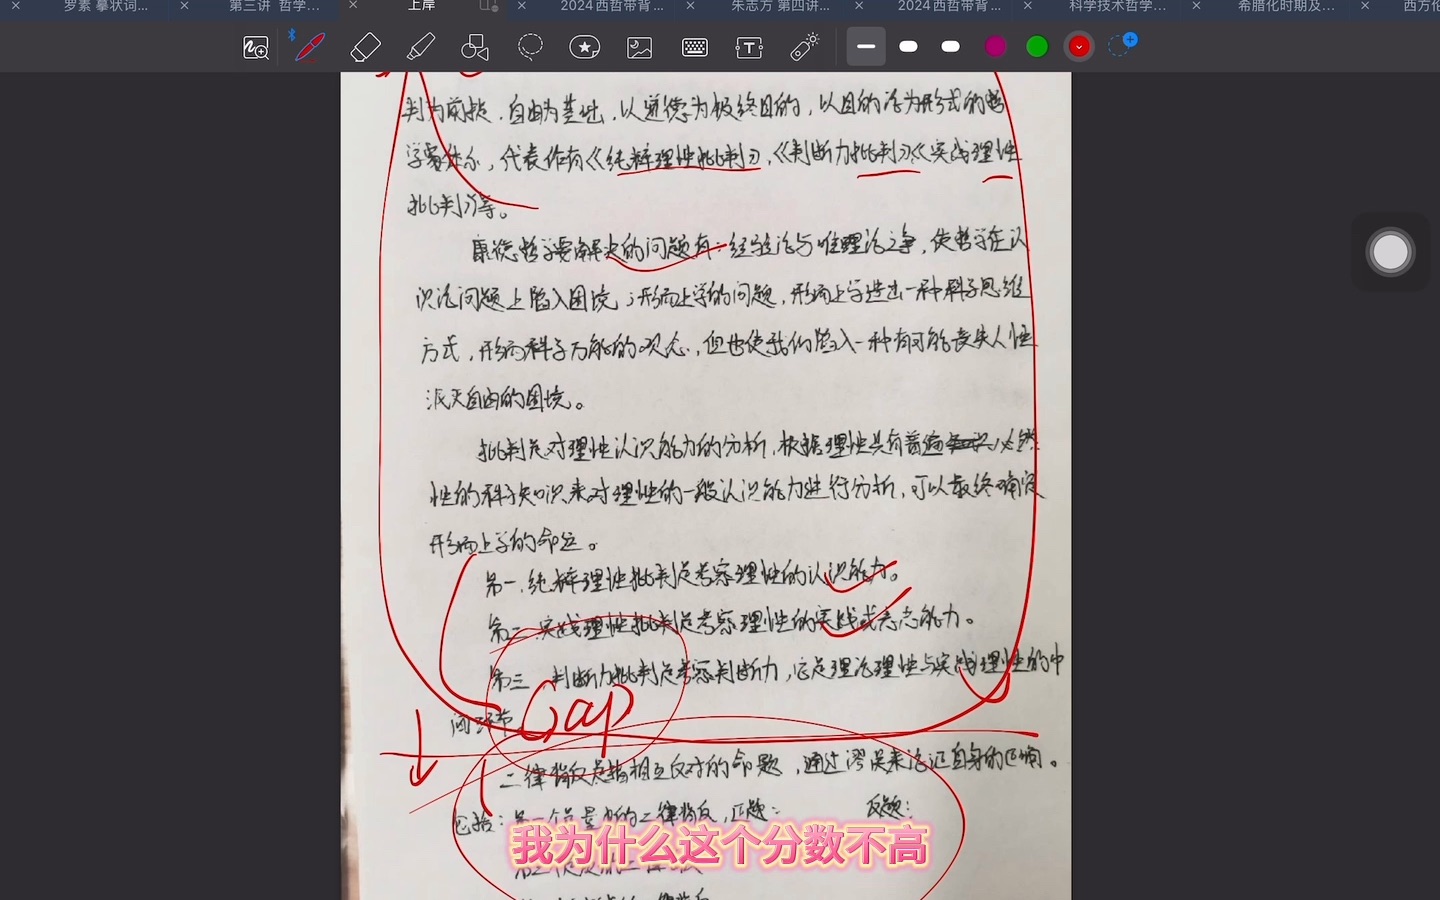 罗素 摹状词...
第三讲 哲学...
上岸
2024西哲带背...
朱志方 第四讲...
2024西哲带背...
科学技术哲学...
希腊化时期及...
西方伦
判为前提,自由为基础,以道德为极终目的,以目的论为形式的哲
学体系,代表作有《纯粹理性批判》,《判断力批判》《实践理性
批判》等。
康德哲学要解决的问题有:经验论与唯理论之争,使哲学在认
识论问题上陷入困境;形而上学的问题,形而上学进出一种科学思维
方式,形而科学万能的观念,但也使我们陷入一种有可能丧失人性
泯灭自由的困境。
批判是对理性认识能力的分析,根据理性具有普遍必然
性的科学知识来对理性的一般认识能力进行分析,可以最终确定
形而上学的命运。
第一,纯粹理性批判是考察理性的认识能力。
第二,实践理性批判是考察理性的实践或意志能力。
第三,判断力批判是考察判断力,它是理论理性与实践理性的中
间环节。
Gap
二律背反是指相互反对的命题,通过谬误来论证自身的正确。
包括:第一个是量的二律背反,正题: 反题:
我为什么这个分数不高